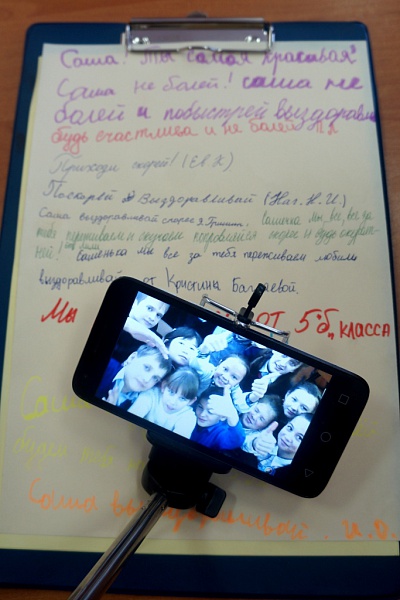 Саша! Ты самая красивая!
Саша не болей! Саша не
болей и побыстрей выздоравли
будь счастлива и не болей
Приходи скорей! (Ев. К)
Поскарей Выздоравливай (Наг. Н. И.)
Саша выздоравливай скорее я Гришина. Сашечка мы, все, все за
тебя переживаем и скучаем
ней! Сашенька мы все за тебя переживаем любим
выздоравливай от Кристины
Мы ОТ 5 "б" класса
Саша
будем
Саша выздоравливай. И.О.